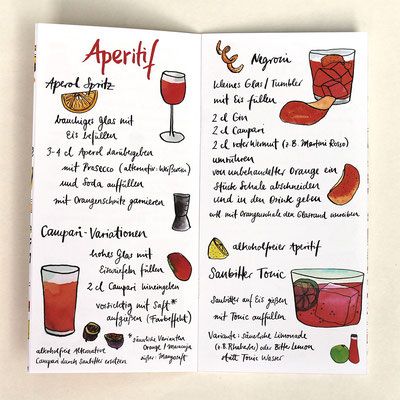 Aperitif
Aperol Spritz
bauchiges Glas mit
Eis befüllen
3-4 cl Aperol darübergeben
mit Prosecco (alternativ: Weißwein)
und Soda auffüllen
mit Orangenschnitz garnieren
Campari-Variationen
hohes Glas mit
Eiswürfeln füllen
2 cl Campari hineingeben
vorsichtig mit Saft*
aufgießen (Farbeffekt)
*säuerliche Varianten
Orange / Maracuja
süßer: Mangosaft
alkoholfreie Alternative
Campari durch Sanbitter ersetzen
Negroni
kleines Glas / Tumbler
mit Eis füllen
2 cl Gin
2 cl Campari
2 cl roter Wermut (z.B. Martini Rosso)
umrühren
von unbehandelter Orange ein
Stück Schale abschneiden
und in den Drink geben
evtl. mit Orangenschale den Glasrand einreiben
alkoholfreier Aperitif
Sanbitter Tonic
Sanbitter auf Eis gießen
mit Tonic auffüllen
Variante: säuerliche Limonade
(z.B. Rhabarber) oder Bitter Lemon
statt Tonic Water